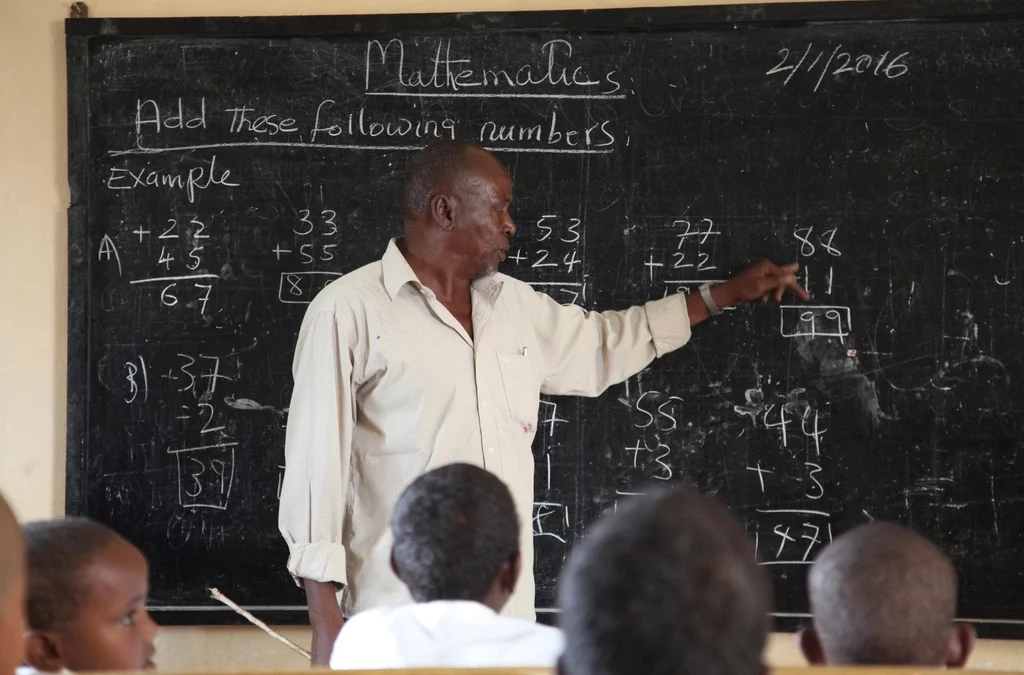 Mathematics.
2/1/2016
Add These following numbers.
Example
A) +22 33 53 77 88
45 +55 +24 +22 11
67 8 7 99
B) +37 7 55 44
2 1 +3 + 3
39 47